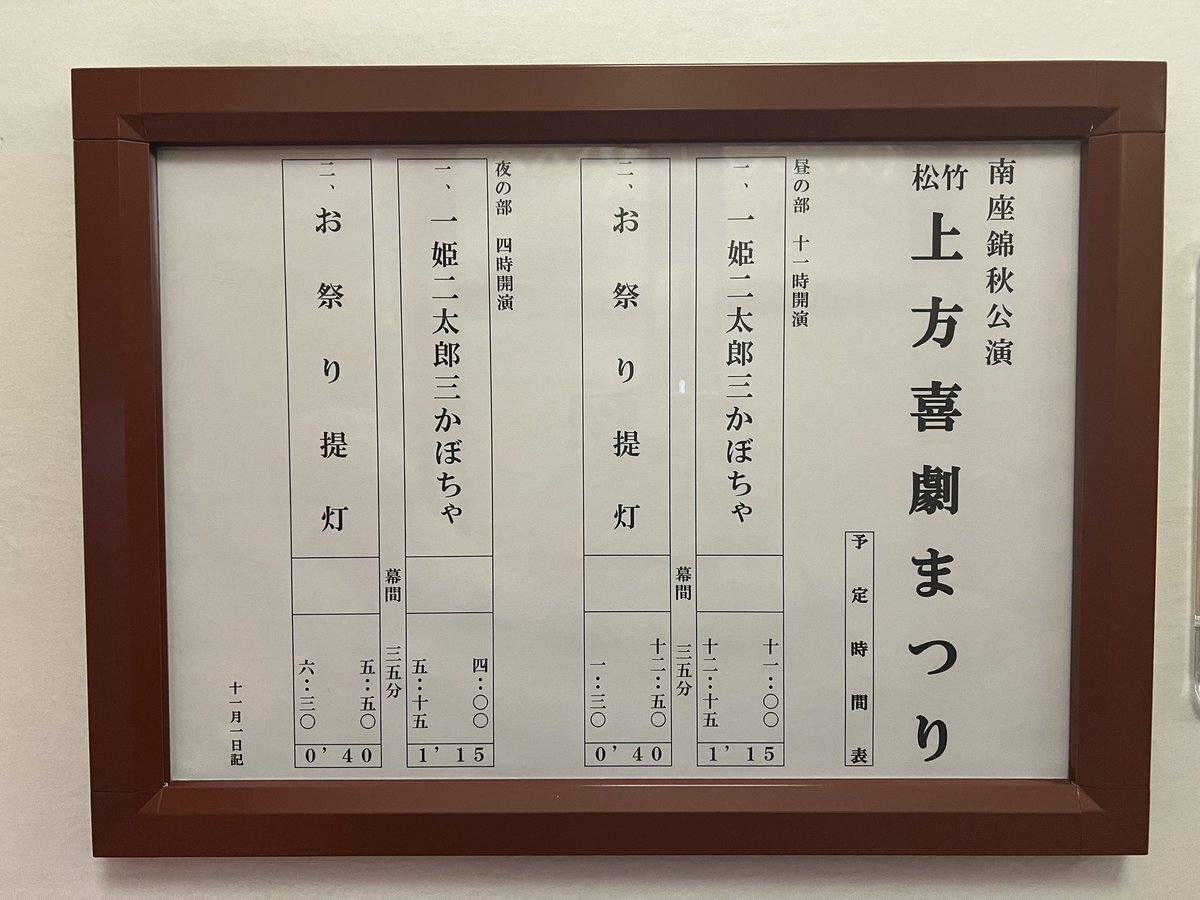 南座錦秋公演
松竹上方喜劇まつり
予定時間表
昼の部 十一時開演
一、一姫二太郎三かぼちゃ
十一・・〇〇
十二・・十五
1’15
幕間 三五分
二、お祭り提灯
十二・・五〇
一・・三〇
0’40
夜の部 四時開演
一、一姫二太郎三かぼちゃ
四・・〇〇
五・・十五
1’15
幕間 三五分
二、お祭り提灯
五・・五〇
六・・三〇
0’40
十一月一日記